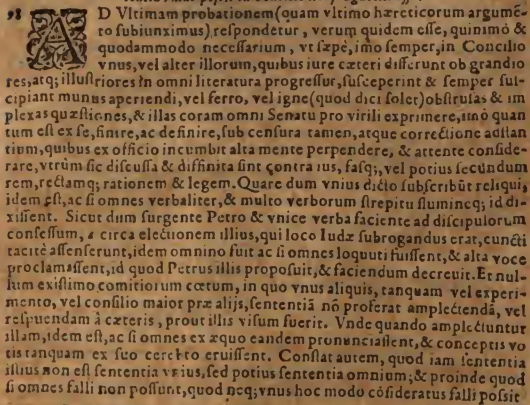 98 AD Vltimam probationem (quam vltimo hæreticorum argumẽ-
to subiunximus) respondetur, verum quidem esse, quinimò &
quodammodo necessarium, vt sæpè, imò semper, in Concilio
vnus, vel alter illorum, quibus iure cæteri differunt ob grandio
res, atq; illustriores in omni literatura progressus, susceperint & semper sus-
cipiant munus aperiendi, vel ferro, vel igne (quod dici solet) obstrusas & im
plexas quæstiones, & illas coram omni Senatu pro virili exprimere, imò quan
tum est ex se, finire, ac definire, sub censura tamen, atque correctione adstan
tium, quibus ex officio incumbit alta mente perpendere, & attente conside-
rare, vtrùm sic discussa & diffinita sint contra ius, fasq;, vel potius secũdum
rem, rectamq; rationem & legem. Quare dum vnius dicto subscribũt reliqui,
idem est, ac si omnes verbaliter, & multo verborum strepitu flumineq; id di-
xissent. Sicut dum surgente Petro & vnice verba faciente ad discipulorum
consessum, a circa electionem illius, qui loco Iudæ subrogandus erat, cuncti
tacitè assenserunt, idem omnino fuit ac si omnes loquuti fuissent, & alta voce
proclamassent, id quod Petrus illis proposuit, & faciendum decreuit. Et nul-
lum existimo comitiorum cœtum, in quo vnus aliquis, tanquam vel experi-
mento, vel consilio maior præ alijs, sententiã nõ proferat amplectẽdã, vel
respuendam à cæteris, prout illis visum fuerit. Vnde quando amplectuntur
illam, idem est, ac si omnes ex æquo eandem pronunciassent, & conceptis vo
tis tanquam ex suo cerebro eruissent. Constat autem, quod iam sententia
illius non est sententia vnius, sed potius sententia omnium; & proinde quod
si omnes falli non possunt, quod neq; vnus hoc modo cõsideratus falli possit